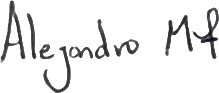 Alejandro Mf